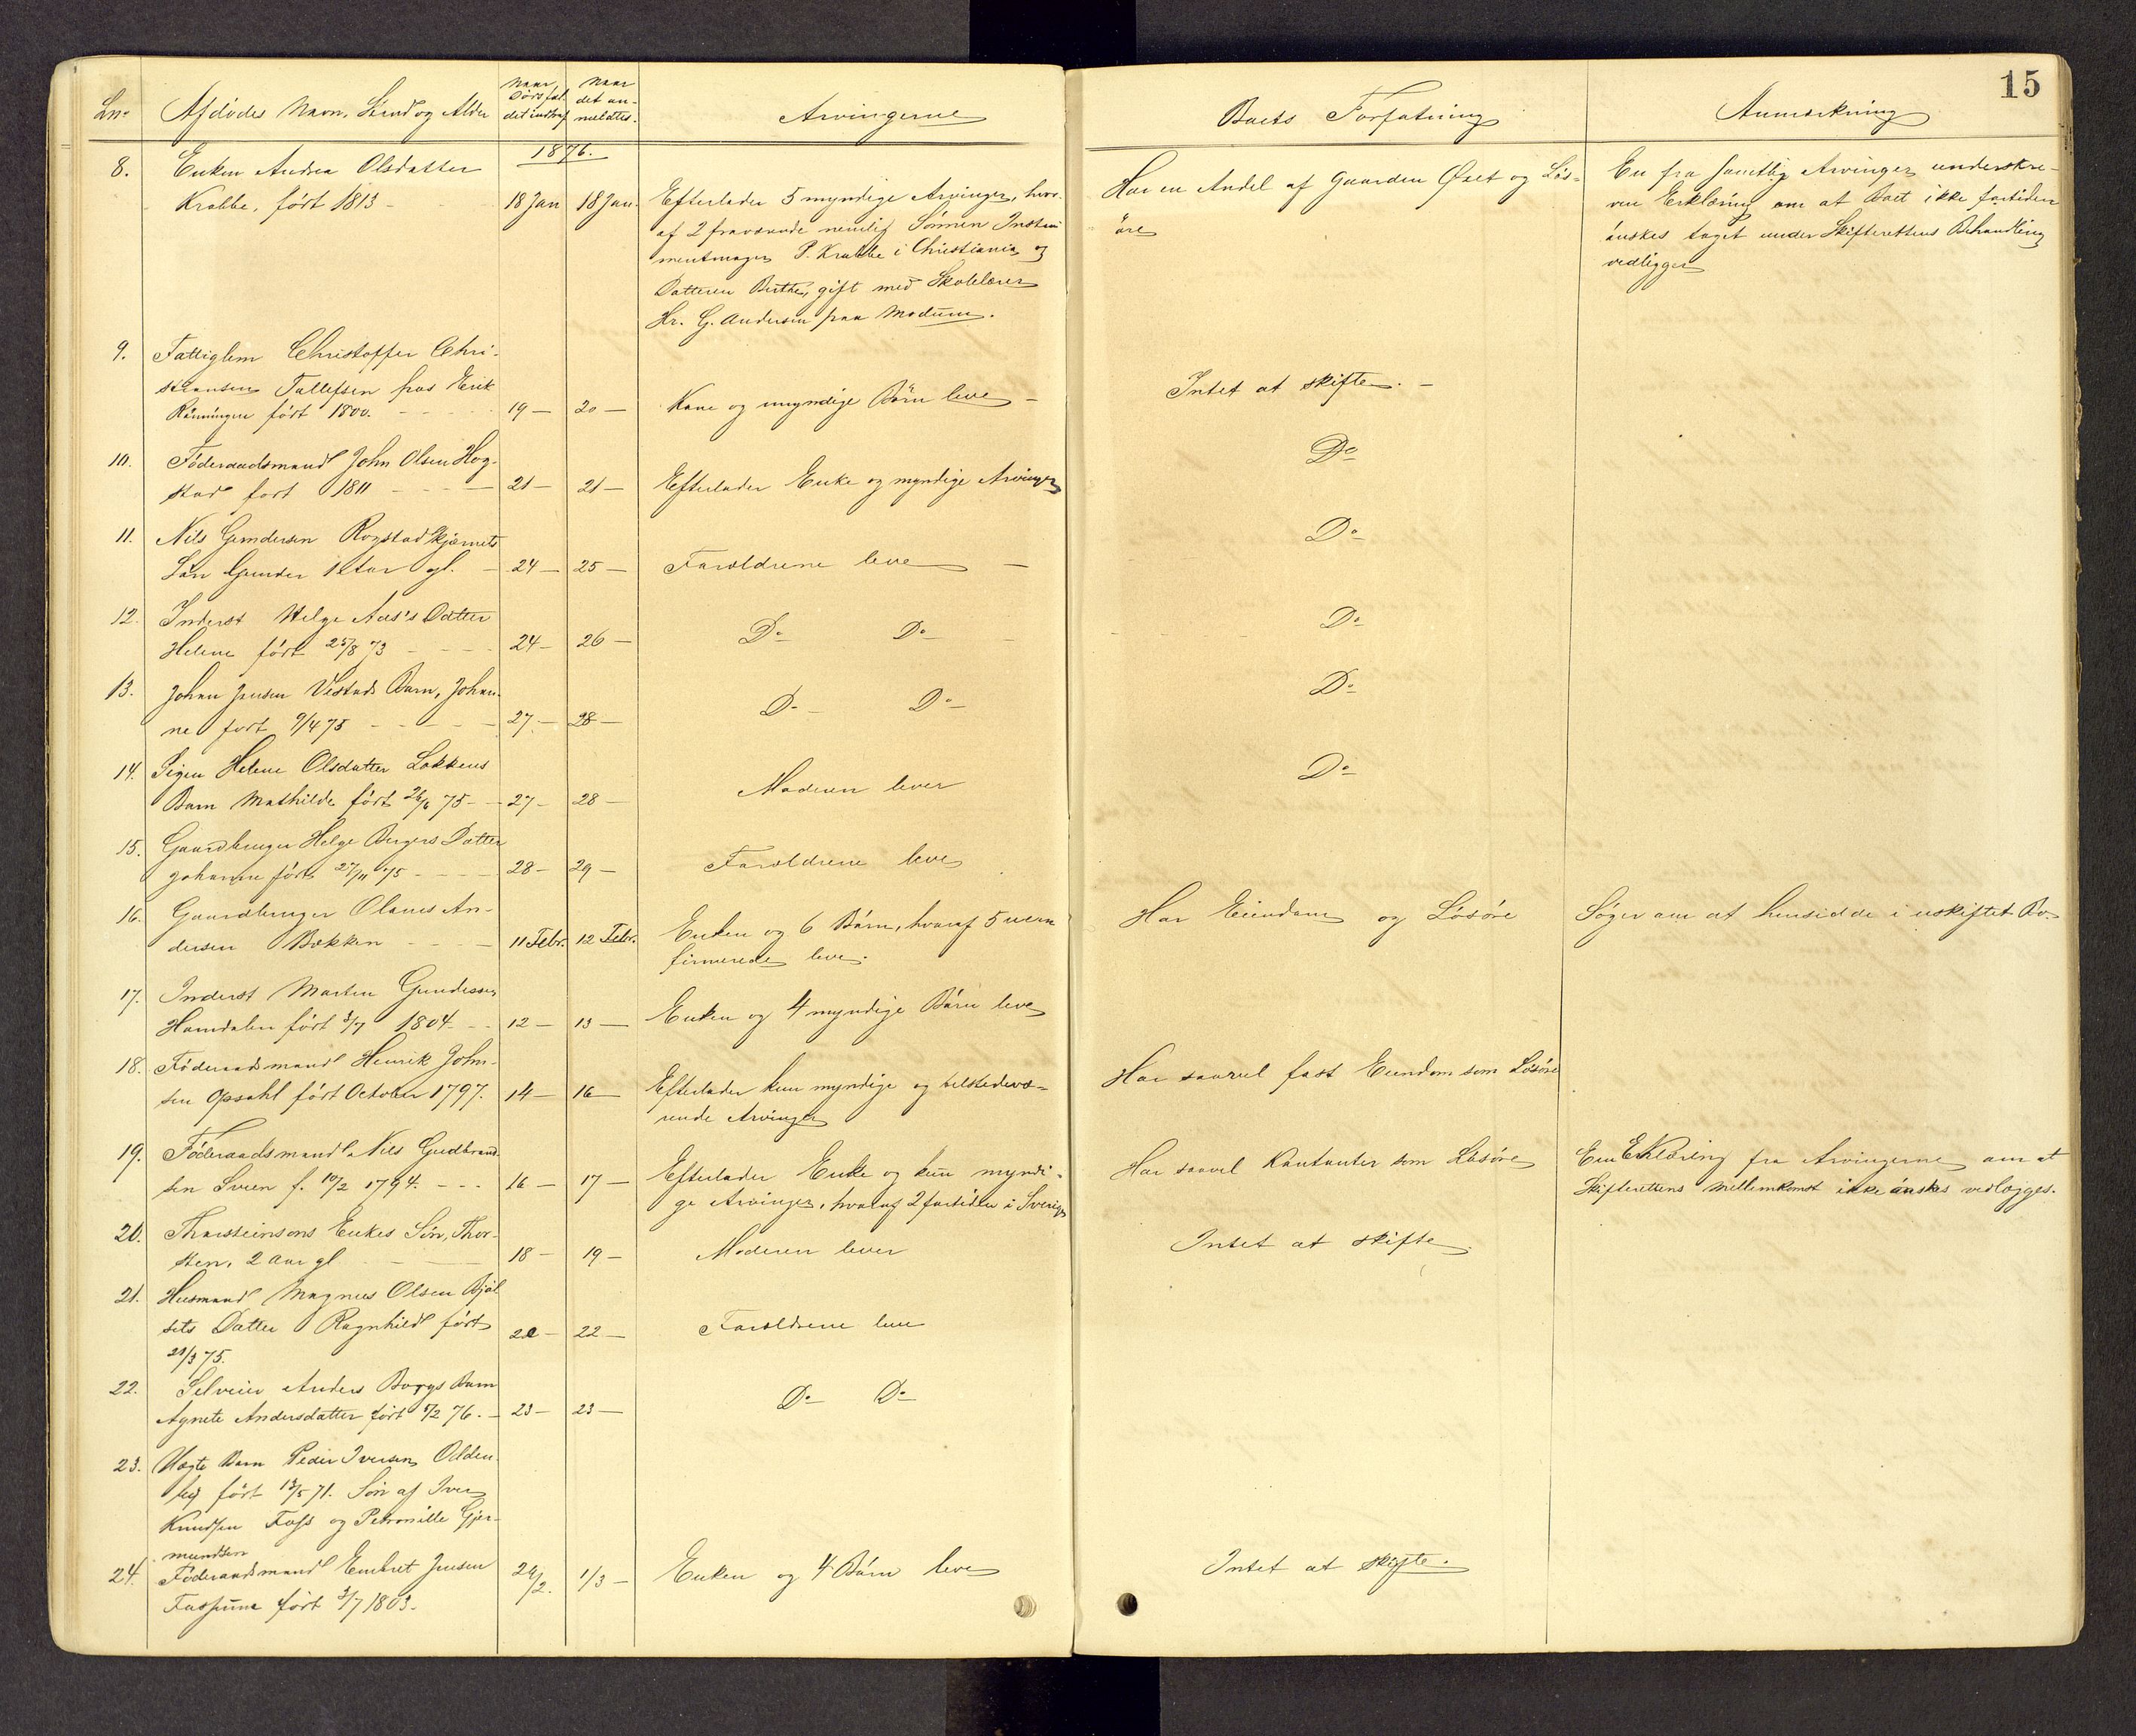 15
Lno
Afdödes Navn, Stand og Alder
Naar Dödsfal. det indtraf
Naar det an- meldtes.
Arvingerne
Boets Forfatning
Anmærkning
1876.
8. Enken Andrea Olsdatter
Krabbe, født 1813 - 18 Jan 18 Jan.
Efterlader 5 myndige Arvinger, hvor-
af 2 fraværende nemlig Sönnen Instru
mentmager P. Krabbe i Christiania og
Datteren Berthe, gift med Skolelærer
Hr. G. Andersen paa Modum.
Har en Andel af Gaarden Øset og Lös-
öre
En fra samtlig Arvinger underskre-
ven Erklæring om at Boet ikke fortiden
önskes taget under Skifterettens Behandling
vedligger
9. Fattiglem Christoffer Chri-
stiansen Tallefsen hos Erik
Rönningen født 1800. - 19 - 20 -
Kone og myndige Börn leve -
Intet at skifte. -
10. Föderaadsmand John Olsen Hog-
stad fort 1811 - 21 - 21 -
Efterlader Enke og myndige Arvinger
Do
11. Nils Gundersen Rogstadkjærnets
Sön Gunder 12 Aar gl. - 24 - 25 -
Forældrene leve -
Do
12. Inderst Helge Aas's Datter
Helene fört 25/8 73 - 24 - 26 -
Do Do -
Do
13. Johan Jensen Vestads Barn, Johan-
ne fort 9/4 75 - 27 - 28 -
Do - Do -
Do
14. Pigen Helene Olsdatter Løkkens
Barn Mathilde fört 26/6 75 - 27 - 28 -
Moderen lever
Do
15. Gaardbruger Helge Bergers Datter
Johanne fört 27/11 75 - 28 - 29 -
Forældrene leve
16. Gaardbruger Olaves An-
dersen Bækken - 11 Febr. 12 Febr.
Enken og 6 Börn, hvoraf 5 ucon
firmerede leve.
Har Eiendom og Lösöre
Söger om at hensidde i uskiftet Bo
17. Inderst Marten Gundersen
Homdalen fört 3/7 1804 - 12 - 13 -
Enken og 4 myndige Börn leve
18. Föderaadsmand Henrik John-
sen Opsahl fört October 1797. 14 - 16 -
Efterlader kun myndige og tilstedevæ-
rende Arvinger
Har saavel fast Eiendom som Lösöre
19. Föderaadsmand Nils Gudbrand-
sen Sveen f. 10/2 1794. - 16 - 17 -
Efterlader Enke og kun myndi-
ge Arvinger, hvoraf 2 fortiden i Sverige
Har saavel Contanter som Lösöre
En Erklæring fra Arvingerne om at
Skifterettens Mellemkomst ikke önskes vedlægges.
20. Thorsteinsons Enkes Sön, Thor-
sten, 2 Aar gl - 18 - 19 -
Moderen lever
Intet at skifte
21. Husmand Magnus Olsen Bjöl
sets Datter Ragnhild fört 20 - 22 -
21/3 75.
Forældrene leve
22. Selveier Anders Borgs Barn
Agnete Andersdatter fört 5/2 76. - 23 - 23 -
Do Do
23. Uægte Barn Peder Iversen Odden
fört 13/5 71. Sön af Iver
Knudsen Foss og Petronille Gjer-
mundsen
24. Föderaadsmand Embret Jensen
Fossum fört 3/7 1803. 29/2. 1/3 -
Enken og 4 Börn leve
Intet at skifte.